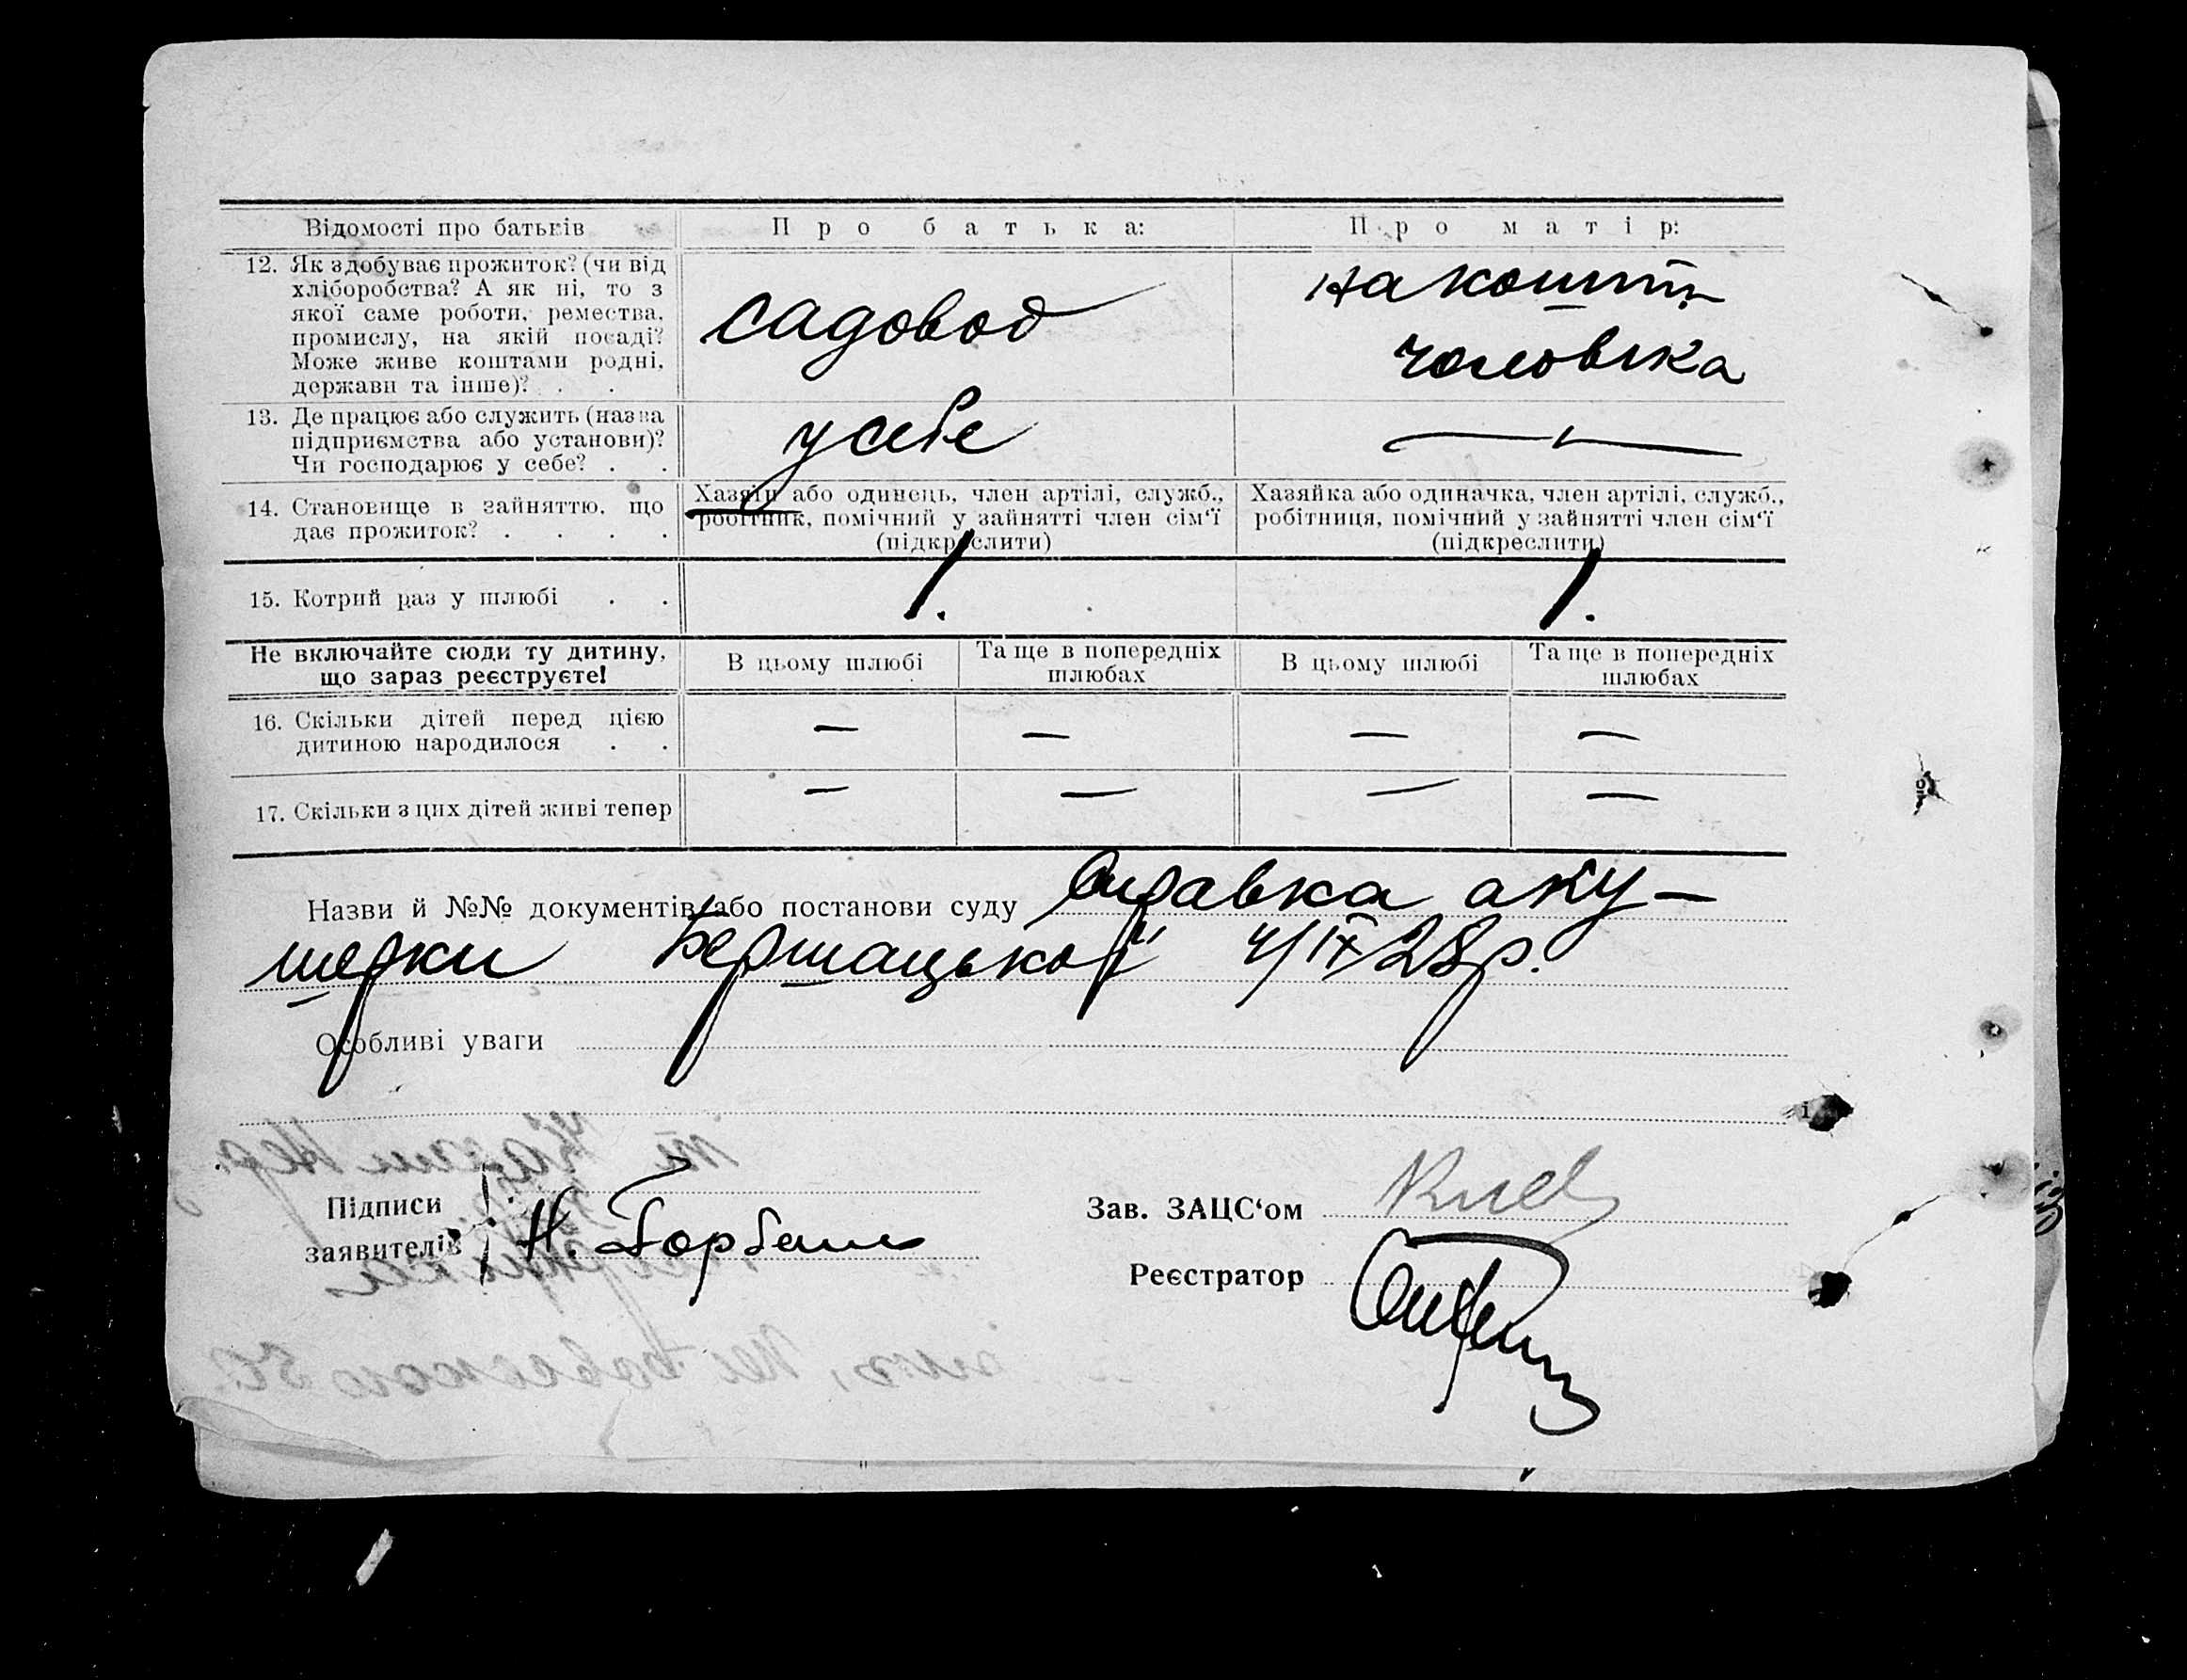 Відомості про батьків
Про батька:
Про матір:
12. Як здобуває прожиток? (чи від
хліборобства? А як ні, то з
якої саме роботи, ремества,
промислу, на якій посаді?
Може живе коштами родні,
держави та інше)? . .
садовод
на кошти
чоловіка
13. Де працює або служить (назва
підприємства або установи)?
Чи господарює у себе? . .
у себе
14. Становище в зайняттю, що
дає прожиток? . . . .
Хазяїн або одинець, член артілі, служб.,
робітник, помічний у зайнятті член сім‘ї
(підкреслити)
Хазяйка або одиначка, член артілі, служб.,
робітниця, помічний у зайнятті член сім‘ї
(підкреслити)
15. Котрий раз у шлюбі . .
1.
1.
Не включайте сюди ту дитину,
що зараз реєструєте!
В цьому шлюбі
Та ще в попередніх
шлюбах
В цьому шлюбі
Та ще в попередніх
шлюбах
16. Скільки дітей перед цією
дитиною народилося . .
— — — —
17. Скільки з цих дітей живі тепер
— — — —
Назви й №№ документів або постанови суду Справка аку-
шерки Бершацької 4/IX 28р.
Особливі уваги
Підписи
заявителів
Н.
Зав. ЗАЦС‘ом
Реєстратор